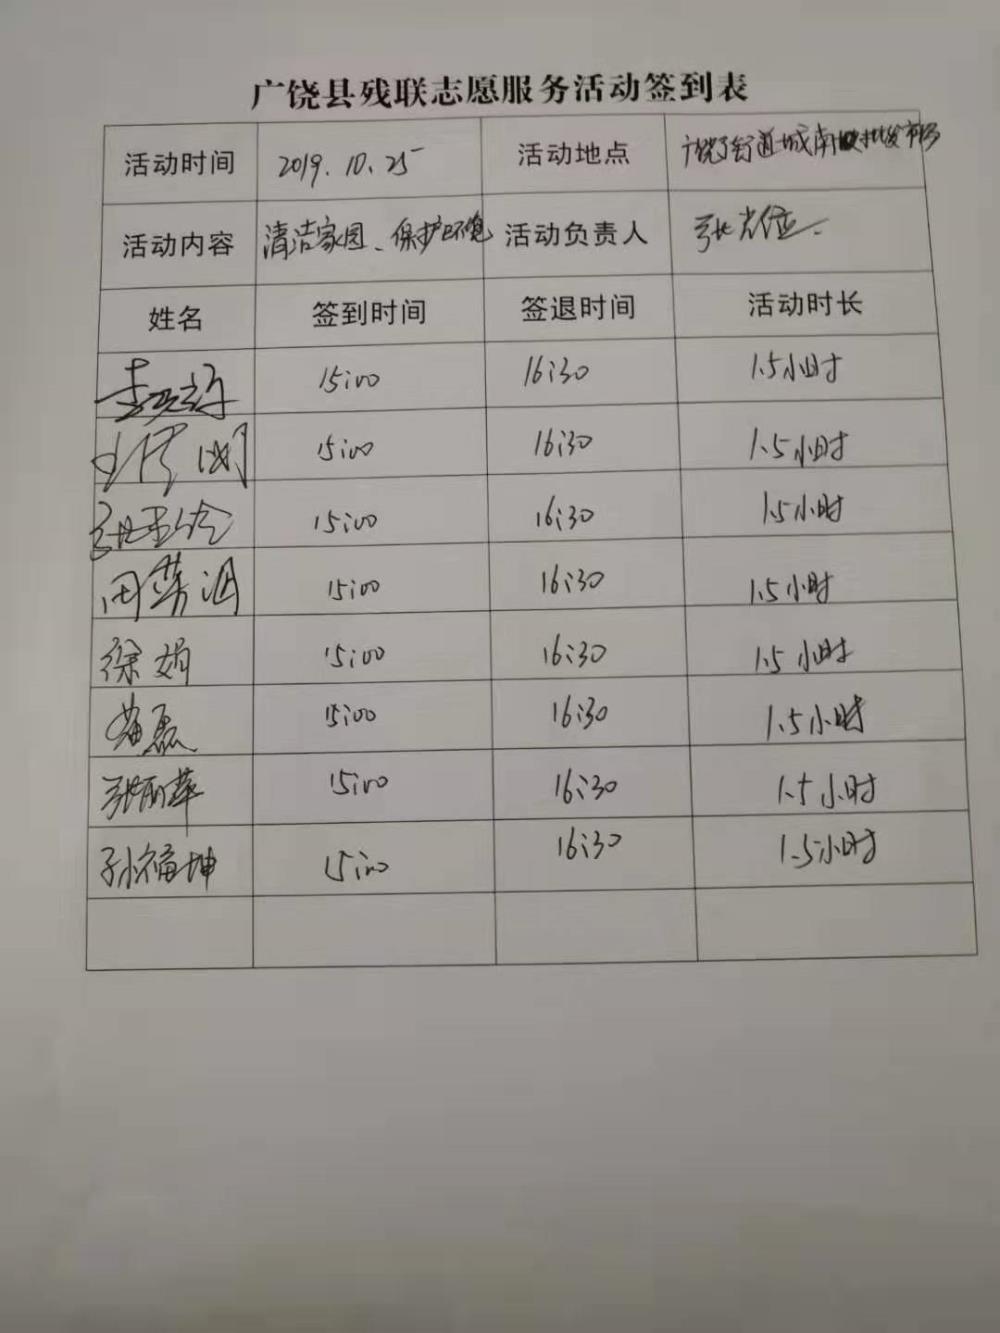 广饶县残联志愿服务活动签到表
活动时间 2019.10.25 活动地点 广饶街道城南批发市场
活动内容 清洁家园、保护环境 活动负责人 张光位
姓名 签到时间 签退时间 活动时长
15:00 16:30 1.5小时
15:00 16:30 1.5小时
15:00 16:30 1.5小时
15:00 16:30 1.5小时
徐娟 15:00 16:30 1.5小时
黄磊 15:00 16:30 1.5小时
张丽萍 15:00 16:30 1.5小时
孙福坤 15:00 16:30 1.5小时